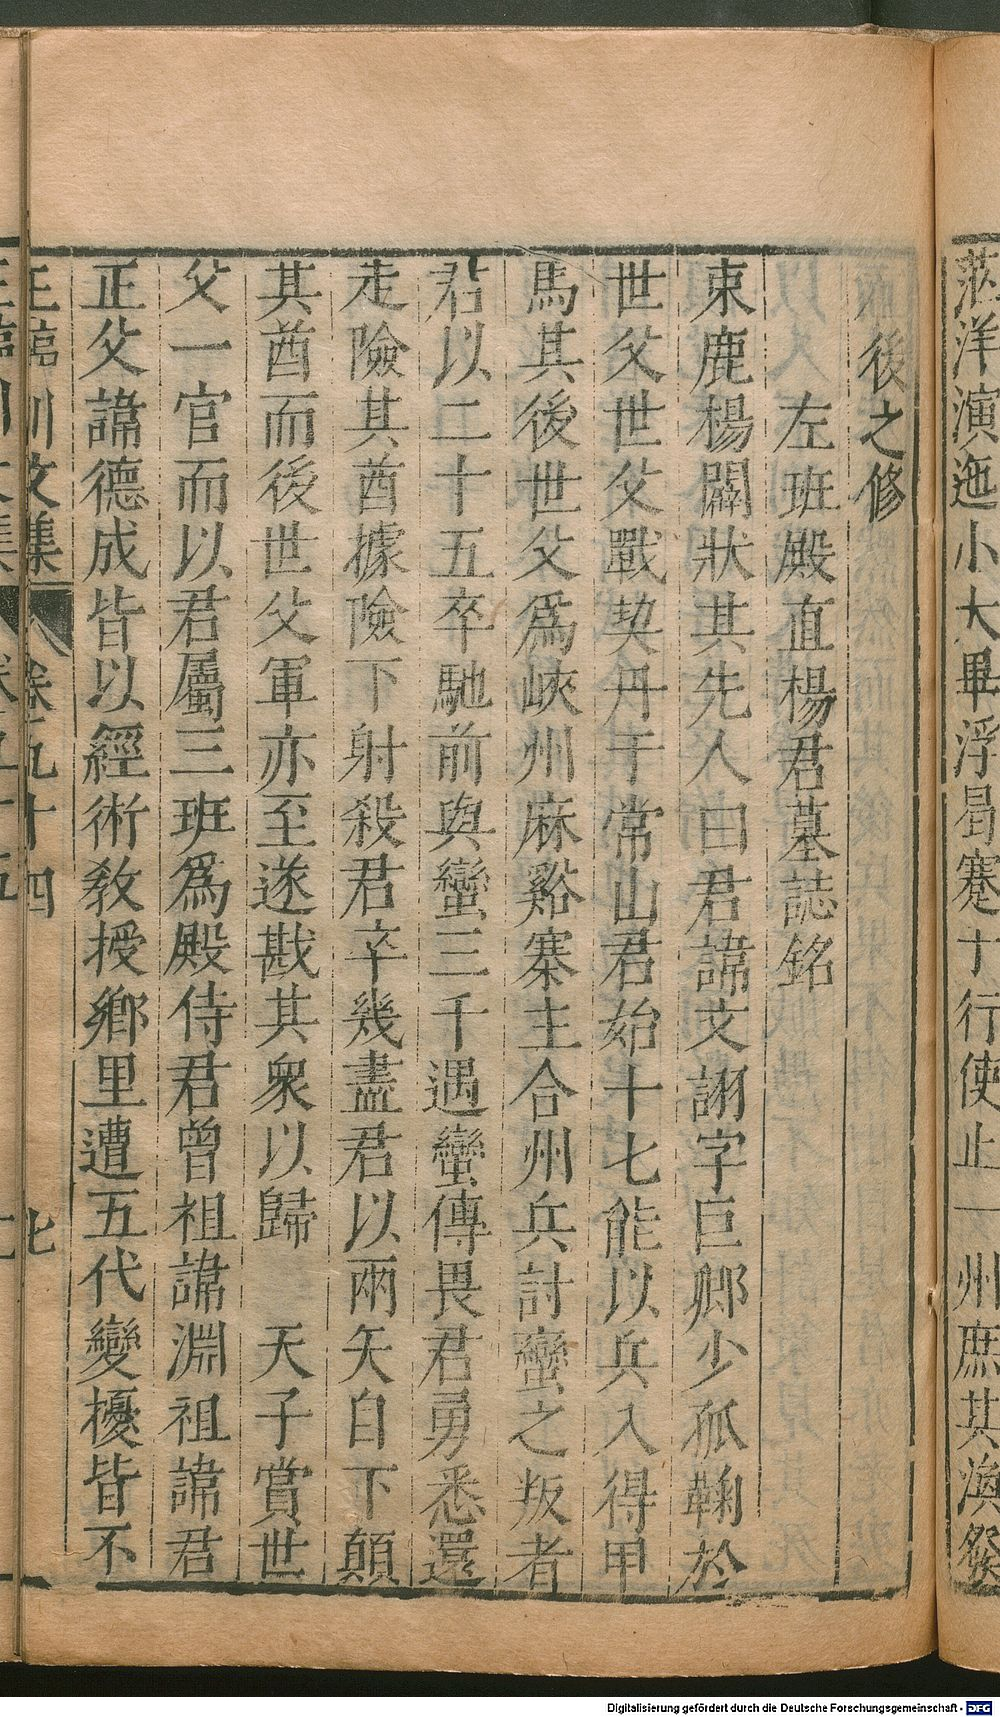 洋演迤小大畢浮曷蹇十行使止一州庶其渙
後之修
左班殿直楊君墓誌銘
束鹿楊闢狀其先人曰君諱文詡字巨卿少孤鞠於
世父世父戰契丹于常山君始十七能以兵入得甲
馬其後世父爲峽州麻谿寨主合州兵討蠻之叛者
君以二十五卒馳前與蠻三千遇蠻傳畏君勇悉還
走險其酋據險下射殺君卒幾盡君以兩矢自下顛
其酋而後世父軍亦至遂戡其衆以歸 天子賞世
父一官而以君屬三班爲殿侍君曾祖諱淵祖諱君
正父諱德成皆以經術敎授鄉里遭五代變擾皆不
王臨川文集 卷九十四 七
Digitalisierung gefördert durch die Deutsche Forschungsgemeinschaft - DFG